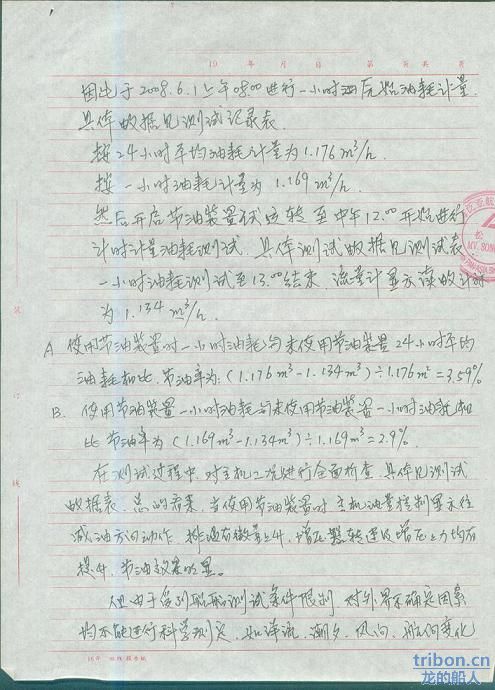 19 年 月 日 第 页 共 页
因此于2008.6.1上午08:00进行一小时油耗计量
具体数据见测试记录表.
按24小时平均油耗计量为1.176 m³/h.
按一小时油耗计量为1.169 m³/h.
然后开启节油装置 运转至中午12.00开始进行
计时计量油耗测试. 具体测试数据见测试表
一小时油耗测试至13.00结束. 流量计显示读数计时
为1.134 m³/h.
A 使用节油装置时一小时油耗与未使用节油装置24小时平均
油耗相比. 节油率为:(1.176m³-1.134m³)÷1.176m³=3.59%
B. 使用节油装置一小时油耗与未使用节油装置一小时油耗相
比节油率为(1.169m³-1.134m³)÷1.169m³=2.9%.
在测试过程中. 对主机工况进行全面检查. 具体见测试
数据表. 总的看来. 当使用节油装置时. 主机油量控制显示往
减油方向动作. 排温有微量上升, 增压器转速及增压压力均有
提升, 节油效果明显.
但由于受到船舶测试条件限制 对外界不确定因素
均不能进行科学测定. 如海流, 潮汐, 风向, 航向变化
装
订
线
MV. SON
tribon.cn
龙的船人